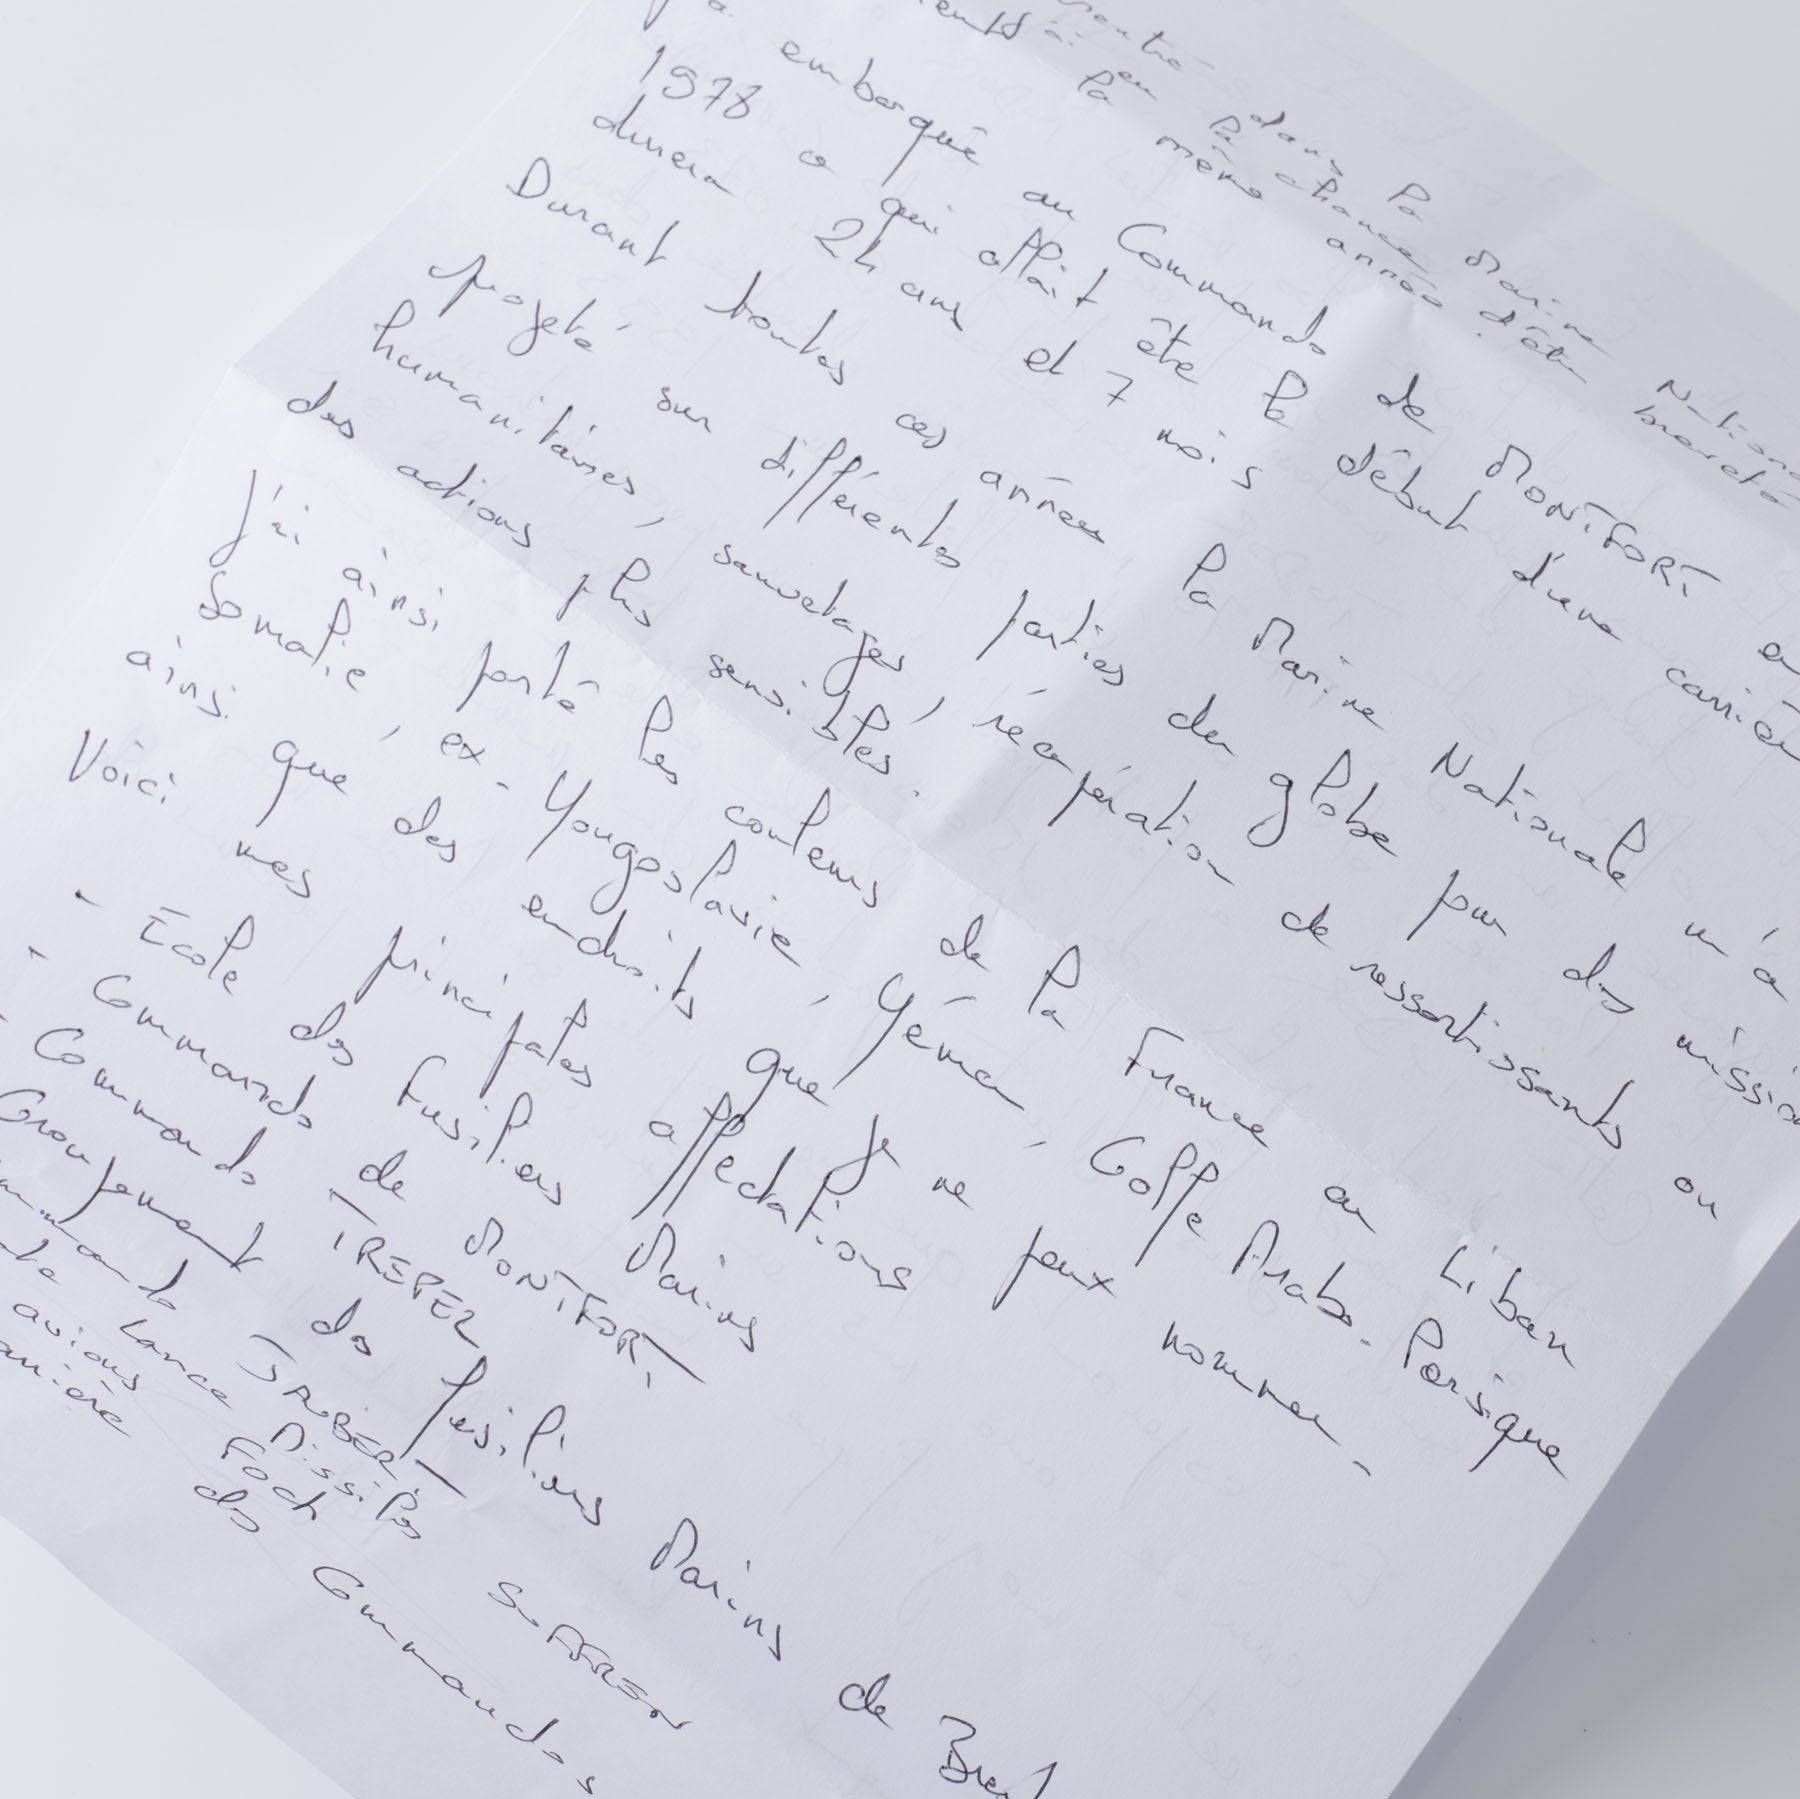 dans la Marine Nationa
eu la chance d'être breveté
la même année
embarqué au Commando de MONTFORT en
1978 ce qui allait être le début d'une carrièr
durera 24 ans et 7 mois
Durant toutes ces années la Marine Nationale m'a
projeté sur différentes parties du globe pour des mission
humanitaires, sauvetages, récupération de ressortissants ou
des actions plus sensibles.
J'ai ainsi porté les couleurs de la France au Liban
Somalie, ex-Yougoslavie, Yémen, Golfe Arabo-Persique
ainsi que des endroits que je ne peux nommer.
Voici mes principales affectations
- École des Fusiliers Marins
- Commando de MONTFORT
- Commando TREPEL
Groupement des fusiliers Marins de Brest
mmando JAUBERT
Lance Missiles SUFFREN
avions FOCH
des Commandos